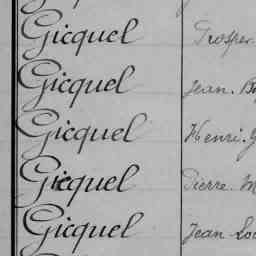 Gicquel Prosper
Gicquel Jean-
Gicquel Henri-
Gicquel Pierre-
Gicquel Jean